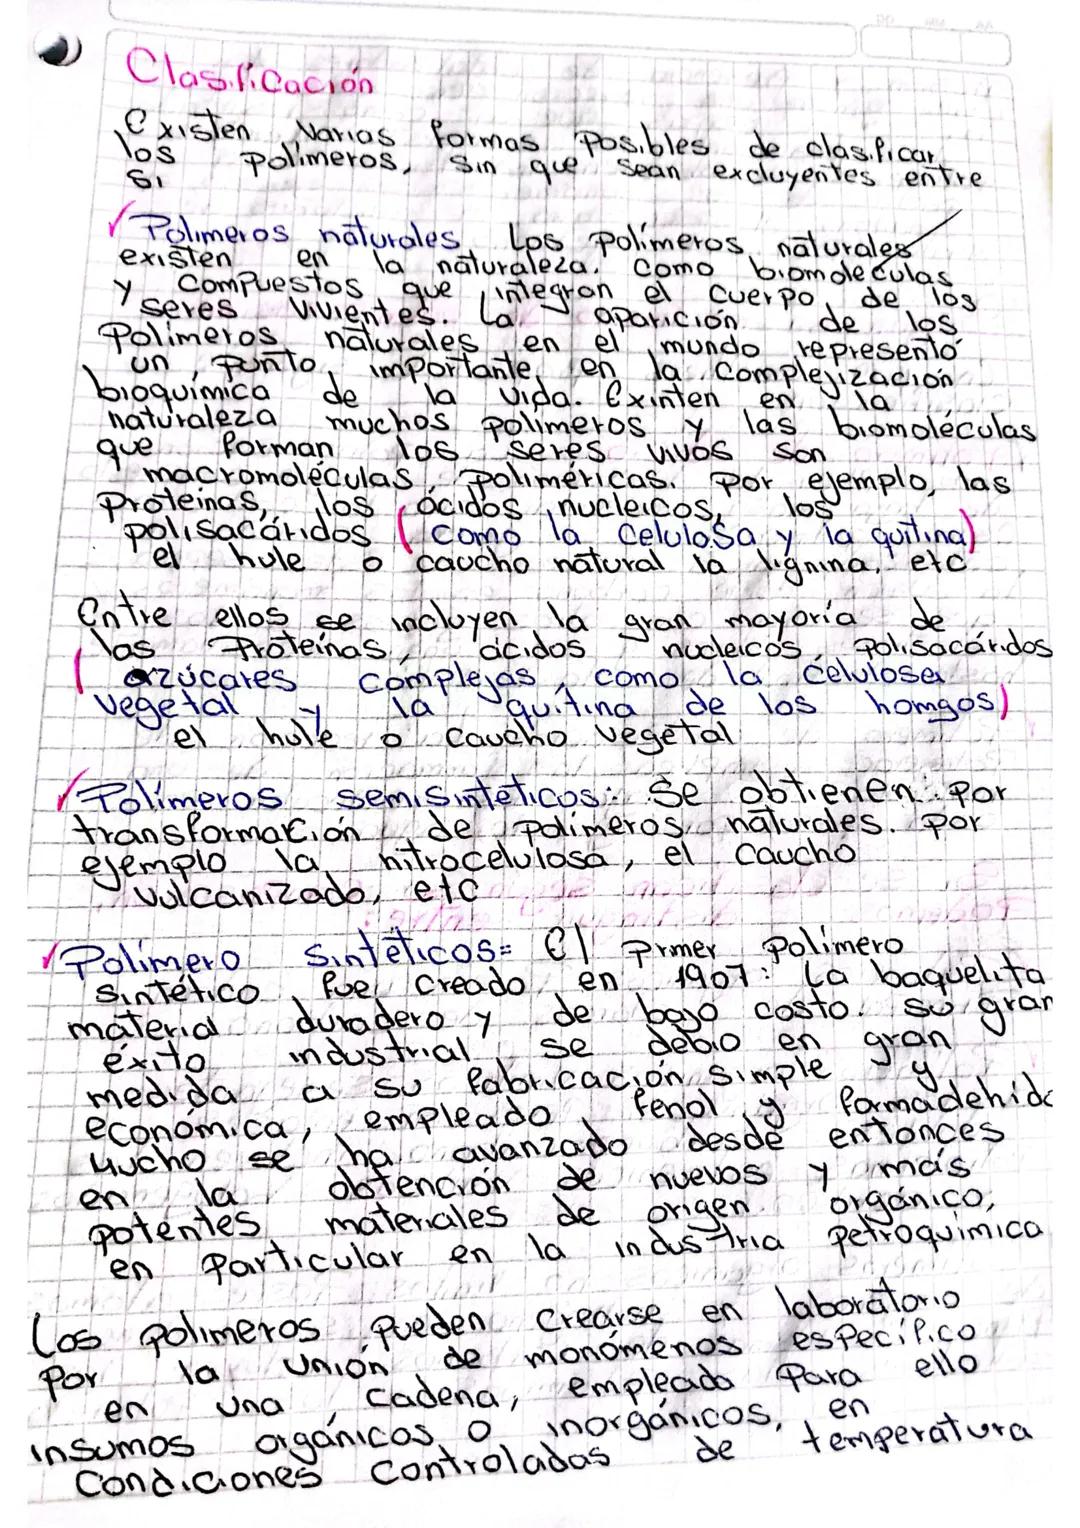 Clasificación
Existen varias formas posibles de clasificar
los polímeros, sin que sean excluyentes entre
si
Polimeros naturales Los polímeros naturales
existen en la naturaleza. Como biomoleculas
y compuestos que integran el cuerpo de los
seres vivientes. La aparición de los
Polímeros naturales en el mundo representó
un punto importante en la complejización
bioquímica de la vida. Existen en la
naturaleza muchos polímeros y las biomoléculas
que forman los seres vivos son
macromoléculas poliméricas. Por ejemplo, las
Proteínas, los ácidos nucleicos, los
polisacáridos (como la celulosa y la quitina)
el hule o caucho natural la lignina, etc
Entre ellos se incluyen la gran mayoría de
las Proteínas, ácidos nucleicos, Polisacáridos
(azúcares complejas, como la celulosa
vegetal y la quitina de los homgos)
el hule o caucho vegetal
Polímeros semisintéticos: Se obtienen por
transformación de polímeros naturales. Por
ejemplo la nitrocelulosa, el caucho
vulcanizado, etc
Polímero sintéticos= El prmer polímero
sintético fue creado en 1907: La baquelita
material duradero y de bajo costo. su gran
éxito industrial se debio en gran
medida a su fabricación simple y
económica, empleado fenol y formadehido
Mucho se ha avanzado desde entonces
en la obtención de nuevos y más
poténtes materiales de origen orgánico,
en particular en la industria petroquímica
Los polimeros pueden crearse en laboratorio
Por la unión de monómenos especifico
en una cadena, empleado para ello
insumos orgánicos o inorgánicos, en
Condiciones controladas de temperatura